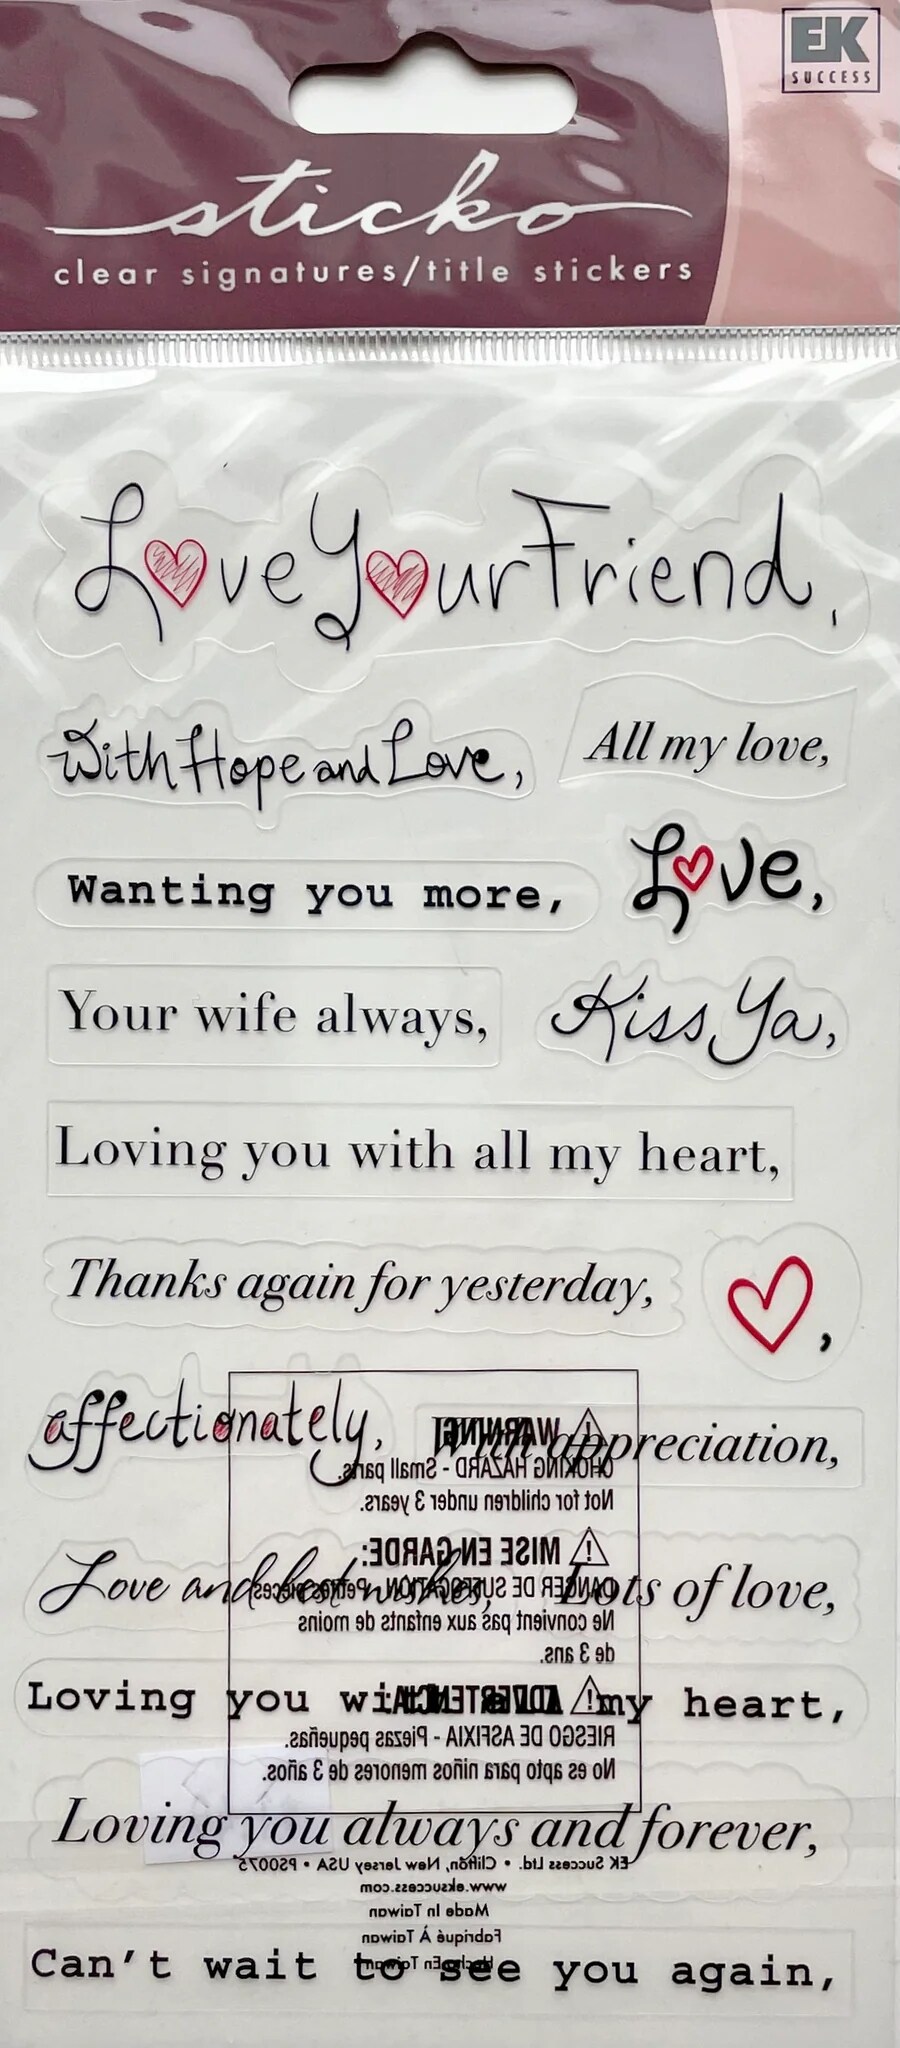 EK
SUCCESS
sticko
clear signatures/title stickers
Love Your Friend,
With Hope and Love,
All my love,
Wanting you more,
Love,
Your wife always,
Kiss Ya,
Loving you with all my heart,
Thanks again for yesterday,
,
affectionately,
With appreciation,
WARNING!
CHOKING HAZARD - Small parts.
Not for children under 3 years.
MISE EN GARDE:
DANGER DE SUFFOCATION - Petites pièces
Ne convient pas aux enfants de moins
de 3 ans.
Love and best wishes,
Lots of love,
ADVERTENCIA:
RIESGO DE ASFIXIA - Piezas pequeñas.
No es apto para niños menores de 3 años.
Loving you with all my heart,
Loving you always and forever,
EK Success Ltd. • Clifton, New Jersey USA • PS0075
www.eksuccess.com
Made In Taiwan
Fabriqué À Taiwan
Hecho En Taiwan
Can't wait to see you again,